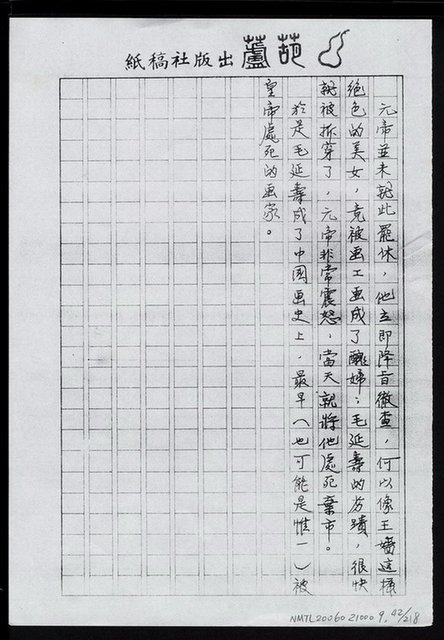 紙稿社版出蘆葫
元帝並未就此罷休，他立即降旨徹查，何以像王嬙這樣
絕色的美女，竟被画工画成了醜婦；毛延壽的劣蹟，很快
就被抓穿了，元帝非常震怒，當天就將他處死棄市。
於是毛延壽成了中國画史上，最早（也可能是惟一）被
皇帝處死的画家。
NMTL200600210009, 42/218